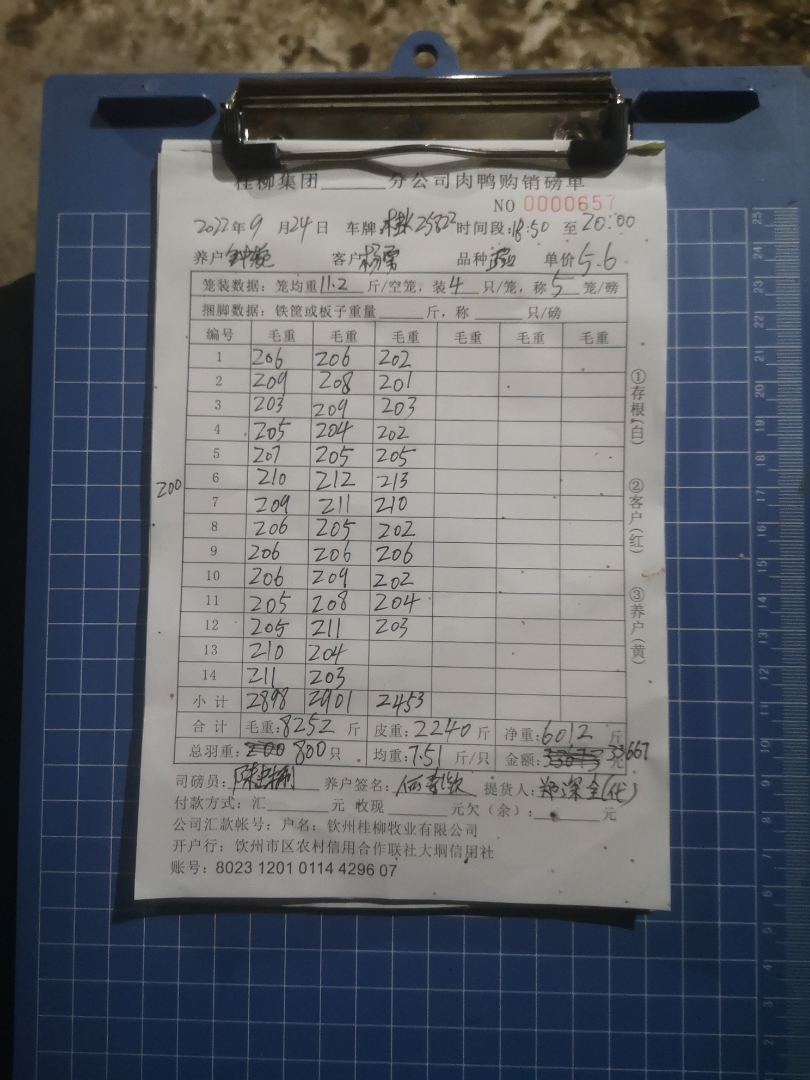 桂柳集团______分公司肉鸭购销磅单
NO 0000657
2022年9月24日 车牌 25822 时间段:18:50 至 20:00
养户 客户 杨勇 品种 单价 5.6
笼装数据: 笼均重 11.2 斤/空笼, 装 4 只/笼, 称 5 笼/磅
捆脚数据: 铁筐或板子重量______斤, 称______只/磅
编号 毛重 毛重 毛重 毛重 毛重 毛重
1 206 206 202
2 209 208 201
3 203 209 203
4 205 204 202
5 207 205 205
6 210 212 213
200
7 209 211 210
8 206 205 202
9 206 206 206
10 206 209 202
11 205 208 204
12 205 211 203
13 210 204
14 211 203
小计 2898 2901 2453
合计 毛重:8252 斤 皮重:2240 斤 净重:6012 斤
总羽重: 800只 均重:7.51 斤/只 金额: 33667 元
司磅员: 养户签名: 提货人:
付款方式: 汇______元 收现______元欠(余):______元
公司汇款帐号: 户名: 钦州桂柳牧业有限公司
开户行: 钦州市区农村信用合作联社大垌信用社
账号: 8023 1201 0114 4296 07
①存根(白)
②客户(红)
③养户(黄)
25
24
23
22
21
20
19
18
17
16
15
14
13
12
11
10
9
8
7
6
5
4
3
2